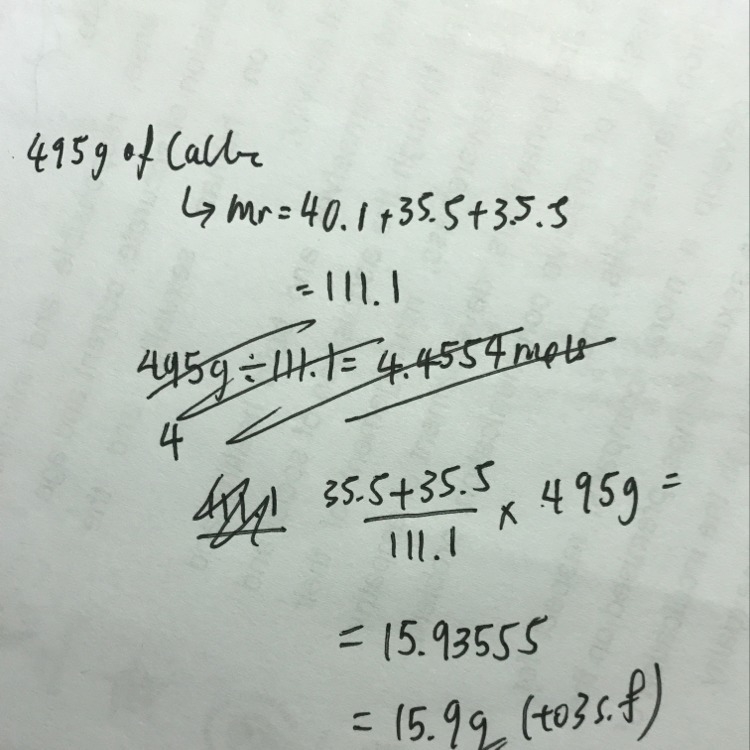 495g of CaCl2
↳ Mr = 40.1 + 35.5 + 35.5
= 111.1
495g ÷ 111.1 = 4.4554 mols
4
35.5+35.5 / 111.1 × 495g =
= 15.93555
= 15.9g (to 3s.f)